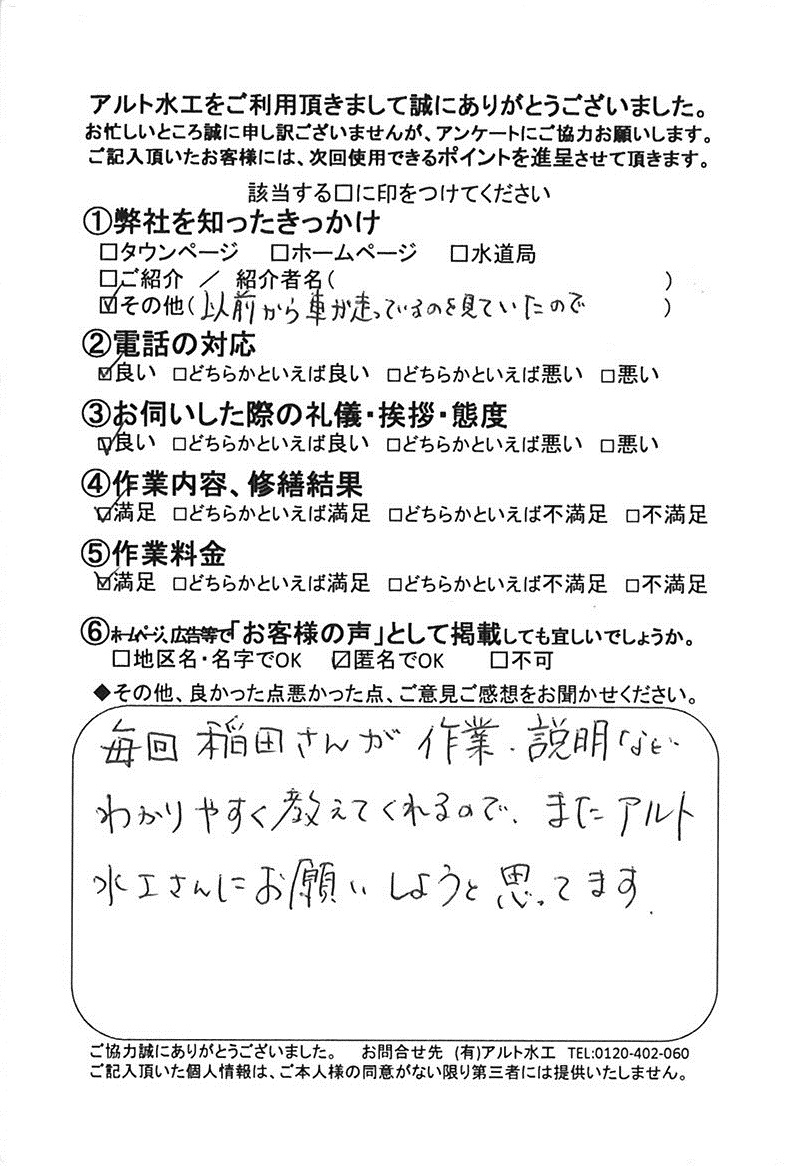 アルト水工をご利用頂きまして誠にありがとうございました。
お忙しいところ誠に申し訳ございませんが、アンケートにご協力お願いします。
ご記入頂いたお客様には、次回使用できるポイントを進呈させて頂きます。
該当する□に印をつけてください
①弊社を知ったきっかけ
□タウンページ □ホームページ □水道局
□ご紹介 ／ 紹介者名( )
☑その他(以前から車が走っているのを見ていたので )
②電話の対応
☑良い □どちらかといえば良い □どちらかといえば悪い □悪い
③お伺いした際の礼儀・挨拶・態度
☑良い □どちらかといえば良い □どちらかといえば悪い □悪い
④作業内容、修繕結果
☑満足 □どちらかといえば満足 □どちらかといえば不満足 □不満足
⑤作業料金
☑満足 □どちらかといえば満足 □どちらかといえば不満足 □不満足
⑥ホームページ、広告等で「お客様の声」として掲載しても宜しいでしょうか。
□地区名・名字でOK ☑匿名でOK □不可
◆その他、良かった点悪かった点、ご意見ご感想をお聞かせください。
毎回 稲田さんが 作業、説明など、
わかりやすく教えてくれるので、またアルト
水工さんにお願いしようと思ってます.
ご協力誠にありがとうございました。 お問合せ先 (有)アルト水工 TEL:0120-402-060
ご記入頂いた個人情報は、ご本人様の同意がない限り第三者には提供いたしません。